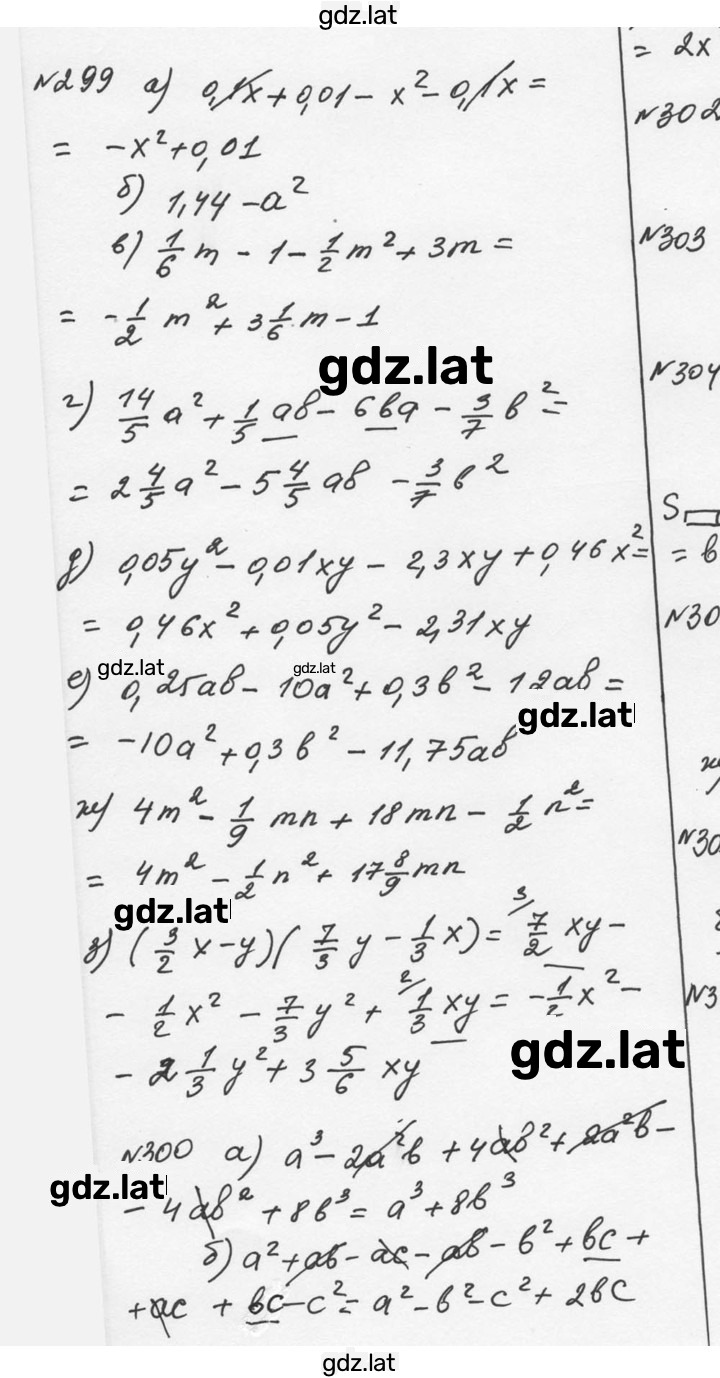 gdz.lat
№299 а) 0,1x + 0,01 - x² - 0,1x =
= -x² + 0,01
б) 1,44 - a²
в) 1/6 m - 1 - 1/2 m² + 3m =
= -1/2 m² + 3 1/6 m - 1
gdz.lat
г) 14/5 a² + 1/5 ab - 6ba - 3/7 b² =
= 2 4/5 a² - 5 4/5 ab - 3/7 b²
д) 0,05y² - 0,01xy - 2,3xy + 0,46x² =
= 0,46x² + 0,05y² - 2,31xy
gdz.lat
gdz.lat
е) 0,25ab - 10a² + 0,3b² - 12ab =
gdz.lat
= -10a² + 0,3b² - 11,75ab
ж) 4m² - 1/9 mn + 18mn - 1/2 n² =
= 4m² - 1/2 n² + 17 8/9 mn
gdz.lat
з) (3/2 x - y)(7/3 y - 1/3 x) = 3/ 7/2 xy -
- 1/2 x² - 7/3 y² + 2/ 1/3 xy = -1/2 x² -
gdz.lat
- 2 1/3 y² + 3 5/6 xy
№300 а) a³ - 2a²b + 4ab² + 2a²b -
gdz.lat
- 4ab² + 8b³ = a³ + 8b³
б) a² + ab - ac - ab - b² + bc +
+ ac + bc - c² = a² - b² - c² + 2bc
= 2x
№302
№303
№304
S
= b
№30
ж)
№30
№3
gdz.lat